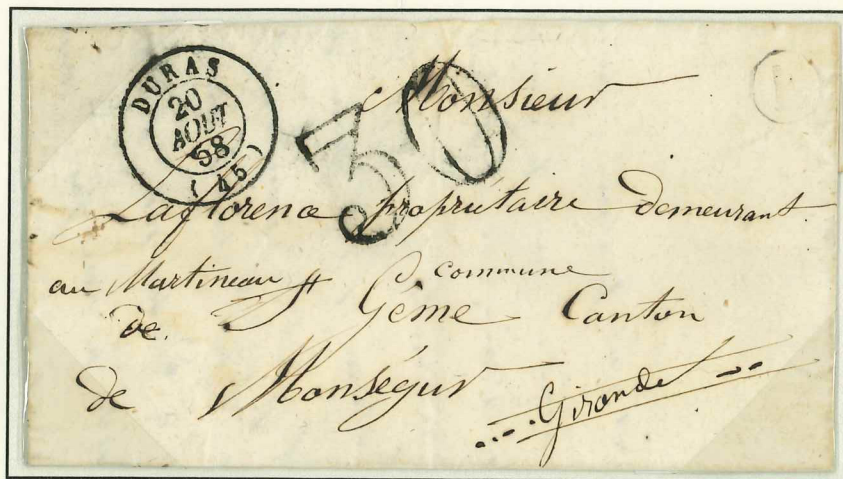 DURAS
20
AOUT
58
(45)
30
Monsieur
Laflorence propriétaire demeurant
au Martineau commune
de. St Gême Canton
de Monségur
Gironde